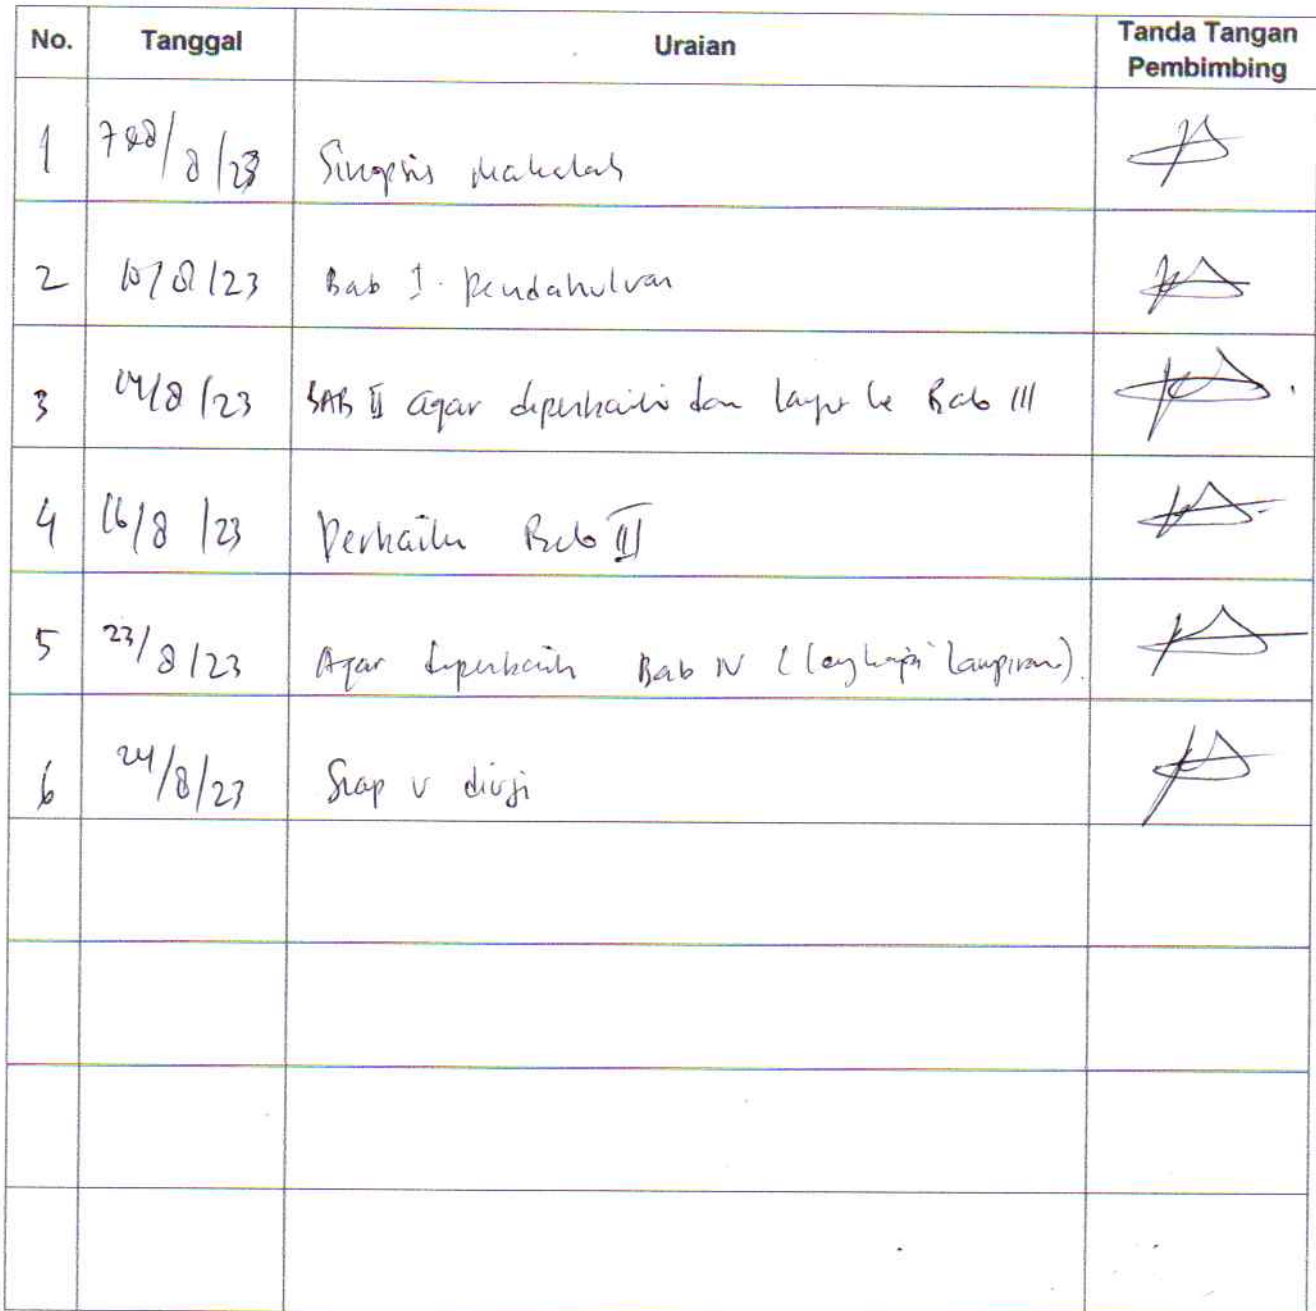 No. Tanggal Uraian Tanda Tangan
Pembimbing
1 7&8/8/23 Sinopsis Makalah
2 10/8/23 Bab I. Pendahuluan
3 14/8/23 BAB II agar diperbaiki dan lanjut ke Bab III
4 16/8/23 Perbaiki Bab III
5 23/8/23 Agar diperbaiki Bab IV (lengkapi lampiran).
6 24/8/23 Siap u diuji